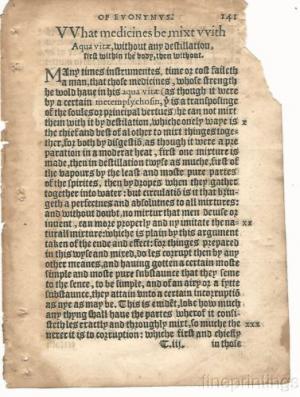 OF EVONYMVS. 141
VVHat medicines be mixt vvith
Aqua vitæ, without any destillation,
first within the body, then without.
MAny times instrumentes, time or cost faileth
a man, that those medicines, whose strength
he wold haue in his aqua vitæ (as though it were
by a certain metempsychosin, ÿ is a transposinge
of the soules or principal vertues) he can not mixt
them with it by destillation, which is only waye is x
the chief and best of al other to mixt thinges toge-
ther, for both by digestiō, as though it were a pre
paration in a moderat heat, first one mixture is
made, then in destillation twyse as much, first of
the vapours by the least and moste pure partes
of the spirites, then by dropes when they gather
together into water: but circulatiō is it that brin-
geth a perfectnes and absolutnes to all mirtures:
and without doubt, no mirtur that men deuse or
inuent, can more properly and ny imitate the na- xx
turall mirture: which is plain by this argument
taken of the ende and effect: for thinges prepared
in this wyse and mixed, do les corrupt then by any
other meanes, and hauing gotten a certain moste
simple and moste pure substaunce that they seme
to the sense, to be simple, and of an airy or a fyrie
substaunce, they attain vnto a certain incorruptiō
as nye as may be. This is euidēt, loke how much
any thyng shall haue the partes wherof it consi-
steth les eractly and throughly mixt, so much the xxx
nerer it is to corruption: whiche first and chiefly
T.iii. in those
fineprintings